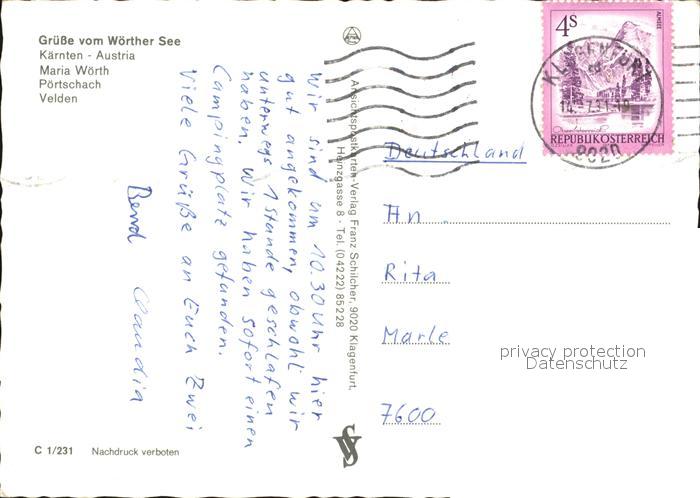 Grüße vom Wörther See
Kärnten - Austria
Maria Wörth
Pörtschach
Velden
Wir sind um 10.30 Uhr hier
gut angekommen, obwohl wir
unterwegs 1 Stunde geschlafen
haben. Wir haben sofort einen
Campingplatz gefunden.
Viele Grüße an Euch Zwei
Bernd Claudia
C 1/231 Nachdruck verboten
Ansichtspostkarten-Verlag Franz Schilcher, 9020 Klagenfurt,
Heinzgasse 8 · Tel. (04222) 85228
4S
ALMSEE
REPUBLIK ÖSTERREICH
KLAGENFURT
9020
Deutschland
An
Rita
Marle
7600
privacy protection
Datenschutz